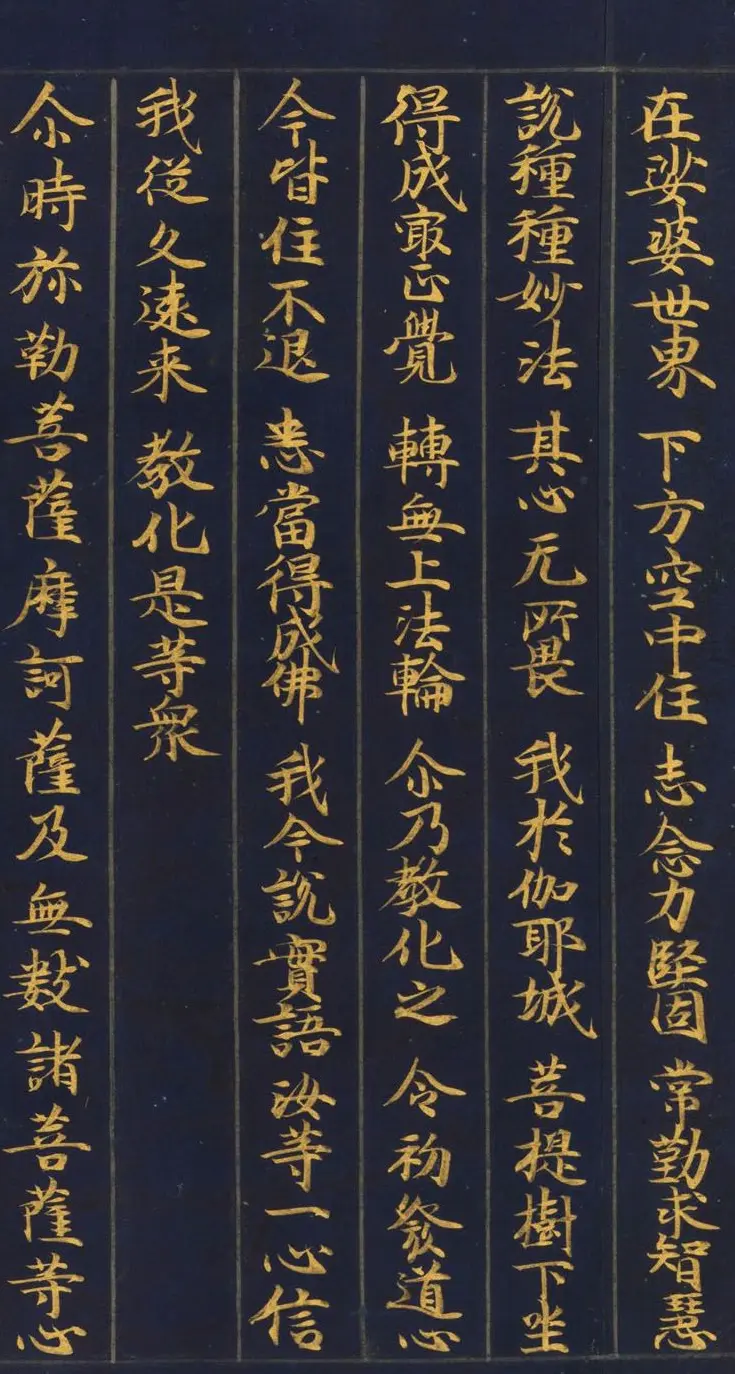 在娑婆世界 下方空中住 志念力堅固 常勤求智慧
說種種妙法 其心无所畏 我於伽耶城 菩提樹下坐
得成㝡正覺 轉無上法輪 尒乃教化之 令初發道心
今皆住不退 悉當得成佛 我今說實語 汝等一心信
我從久遠来 教化是等衆
尒時弥勒菩薩摩訶薩及無數諸菩薩等心